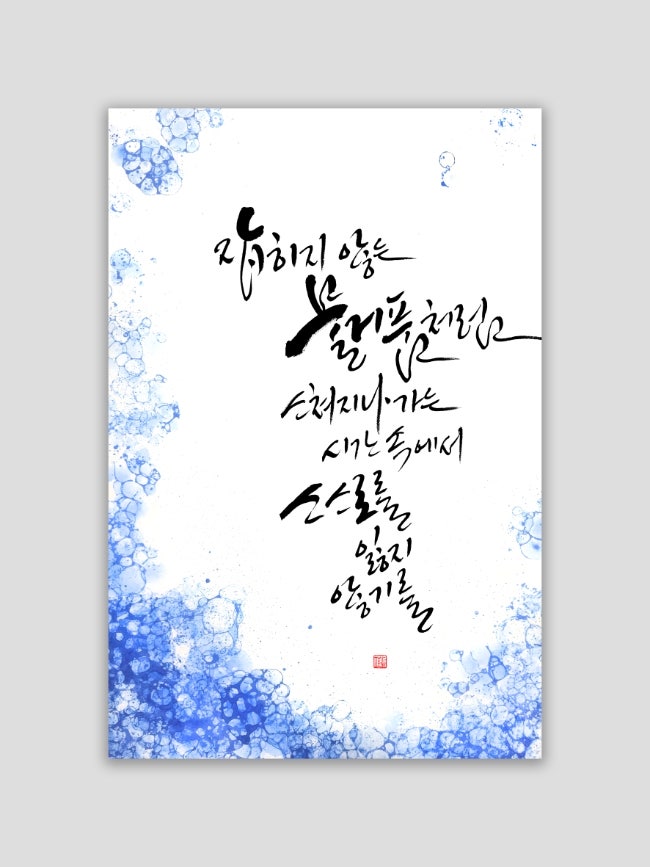 잡히지 않는
물거품처럼
스쳐지나가는
시간 속에서
스스로를
잃지
않기를